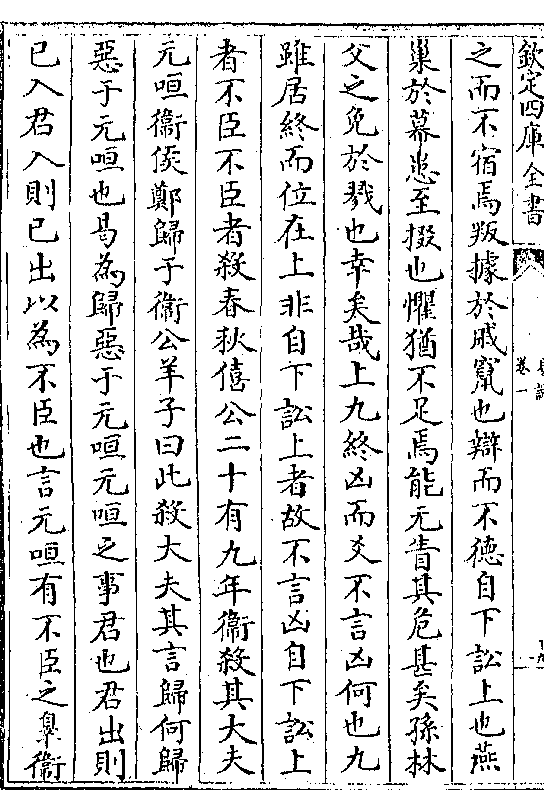 欽定四庫全書
卷一
之而不宿焉叛據於戚竄也辯而不德自下訟上也燕
巢於幕患至掇也懼猶不足焉能无眚其危甚矣孫林
父之免於戮也幸矣哉上九終凶而爻不言凶何也九
雖居終而位在上非自下訟上者故不言凶自下訟上
者不臣不臣者殺春秋僖公二十有九年衞殺其大夫
元咺衞侯鄭歸于衞公羊子曰此殺大夫其言歸何歸
惡于元咺也曷為歸惡于元咺元咺之事君也君出則
已入君入則已出以為不臣也言元咺有不臣之辠衞